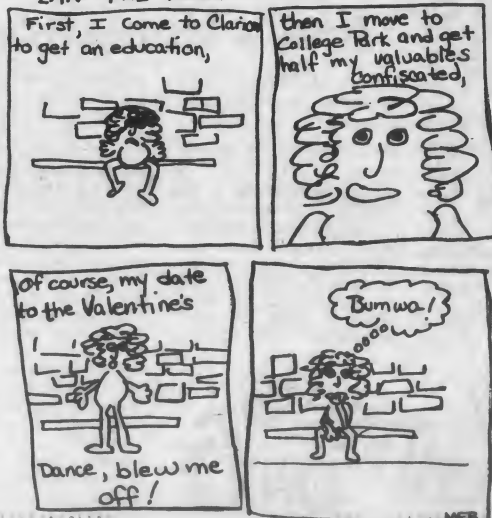 First, I come to Clarion
to get an education,
then I move to
College Park and get
half my valuables
confiscated,
of course, my date
to the Valentine's
Dance, blew me
off!
Bumwa!
MEB